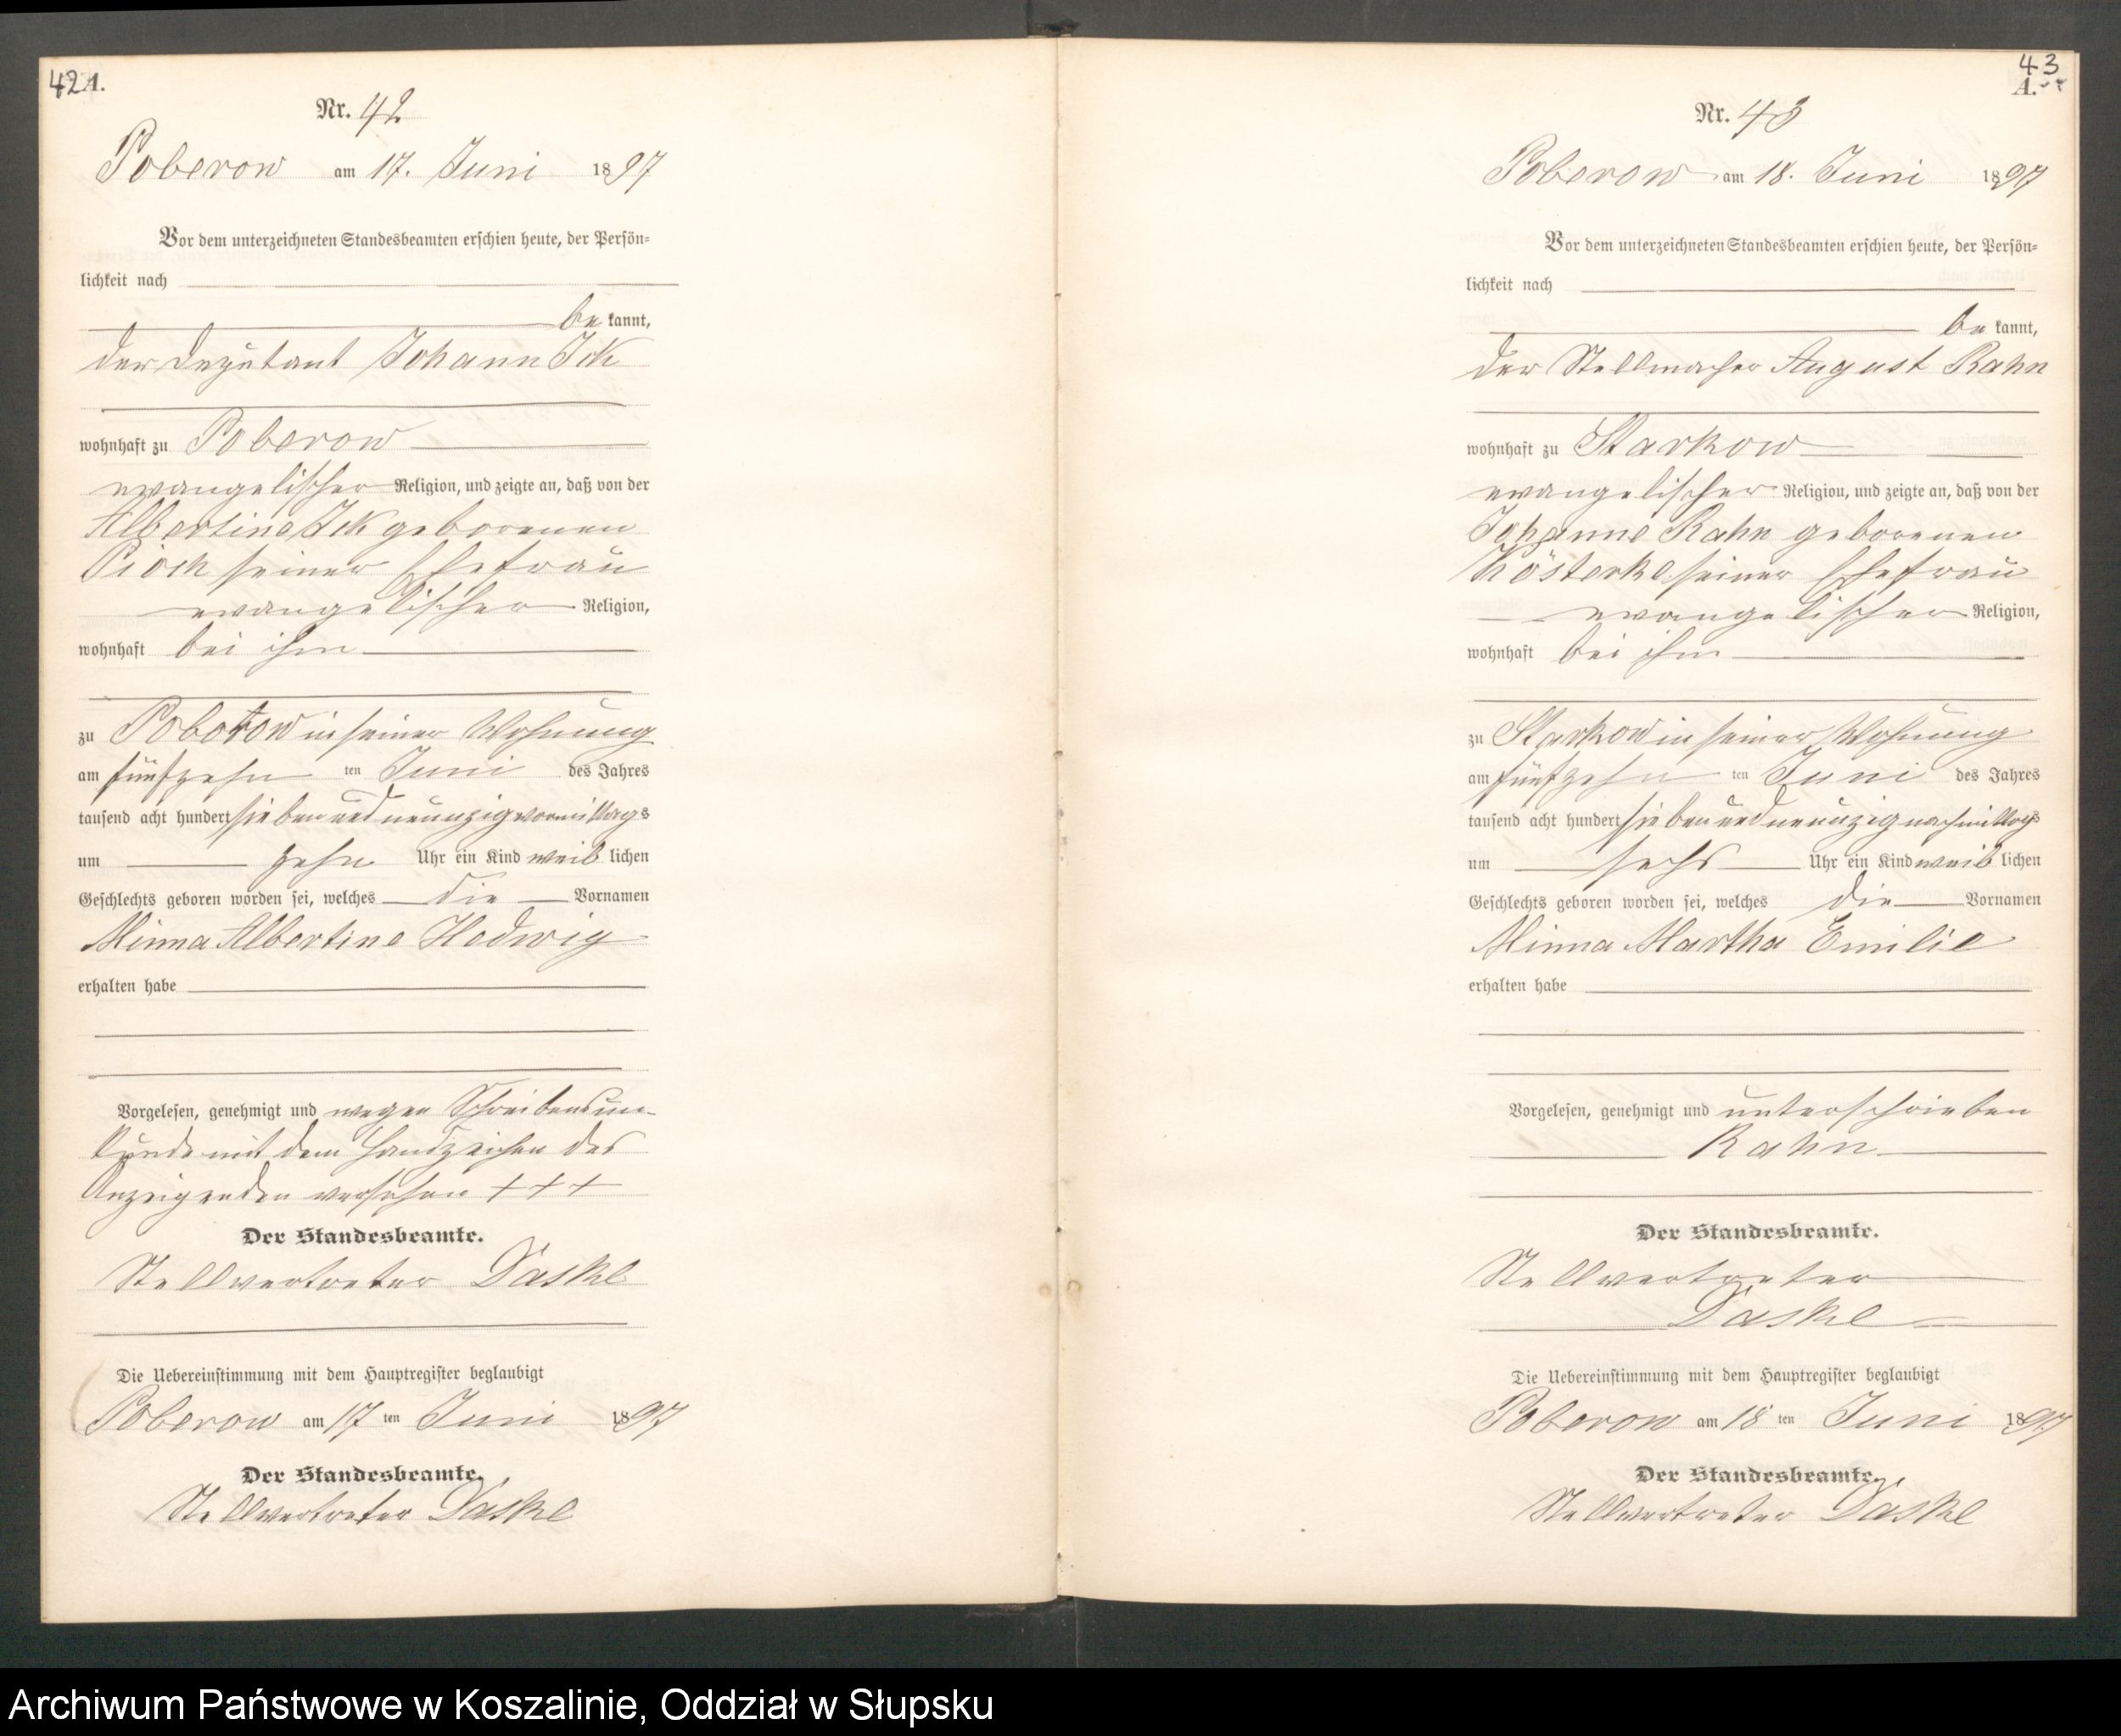 42 A.
Nr. 42
Poberow am 17. Juni 1897
Vor dem unterzeichneten Standesbeamten erschien heute, der Persön-
lichkeit nach
be kannt,
der Deputant Johann Ick
wohnhaft zu Poberow
evangelischer Religion, und zeigte an, daß von der
Albertine Ick geborenen
Pioch seiner Ehefrau
evangelischer Religion,
wohnhaft bei ihm
zu Poberow in seiner Wohnung
am fünfzehn ten Juni des Jahres
tausend acht hundert sieben und neunzig vormittags
um zehn Uhr ein Kind weib lichen
Geschlechts geboren worden sei, welches die Vornamen
Minna Albertine Hedwig
erhalten habe
Vorgelesen, genehmigt und wegen Schreibensun-
kunde mit dem Handzeichen des
Anzeigenden versehen + + +
Der Standesbeamte.
Stellvertreter Daske
Die Uebereinstimmung mit dem Hauptregister beglaubigt
Poberow am 17 ten Juni 1897
Der Standesbeamte.
Stellvertreter Daske
43
A.
Nr. 43
Poberow am 18. Juni 1897
Vor dem unterzeichneten Standesbeamten erschien heute, der Persön-
lichkeit nach
be kannt,
der Stellmacher August Rahn
wohnhaft zu Starkow
evangelischer Religion, und zeigte an, daß von der
Johanne Rahn geborenen
Kösterke seiner Ehefrau
evangelischer Religion,
wohnhaft bei ihm
zu Starkow in seiner Wohnung
am fünfzehn ten Juni des Jahres
tausend acht hundert sieben und neunzig nachmittags
um sechs Uhr ein Kind weib lichen
Geschlechts geboren worden sei, welches die Vornamen
Minna Martha Emilie
erhalten habe
Vorgelesen, genehmigt und unterschrieben
Rahn
Der Standesbeamte.
Stellvertreter
Daske
Die Uebereinstimmung mit dem Hauptregister beglaubigt
Poberow am 18 ten Juni 1897
Der Standesbeamte.
Stellvertreter Daske
Archiwum Państwowe w Koszalinie, Oddział w Słupsku